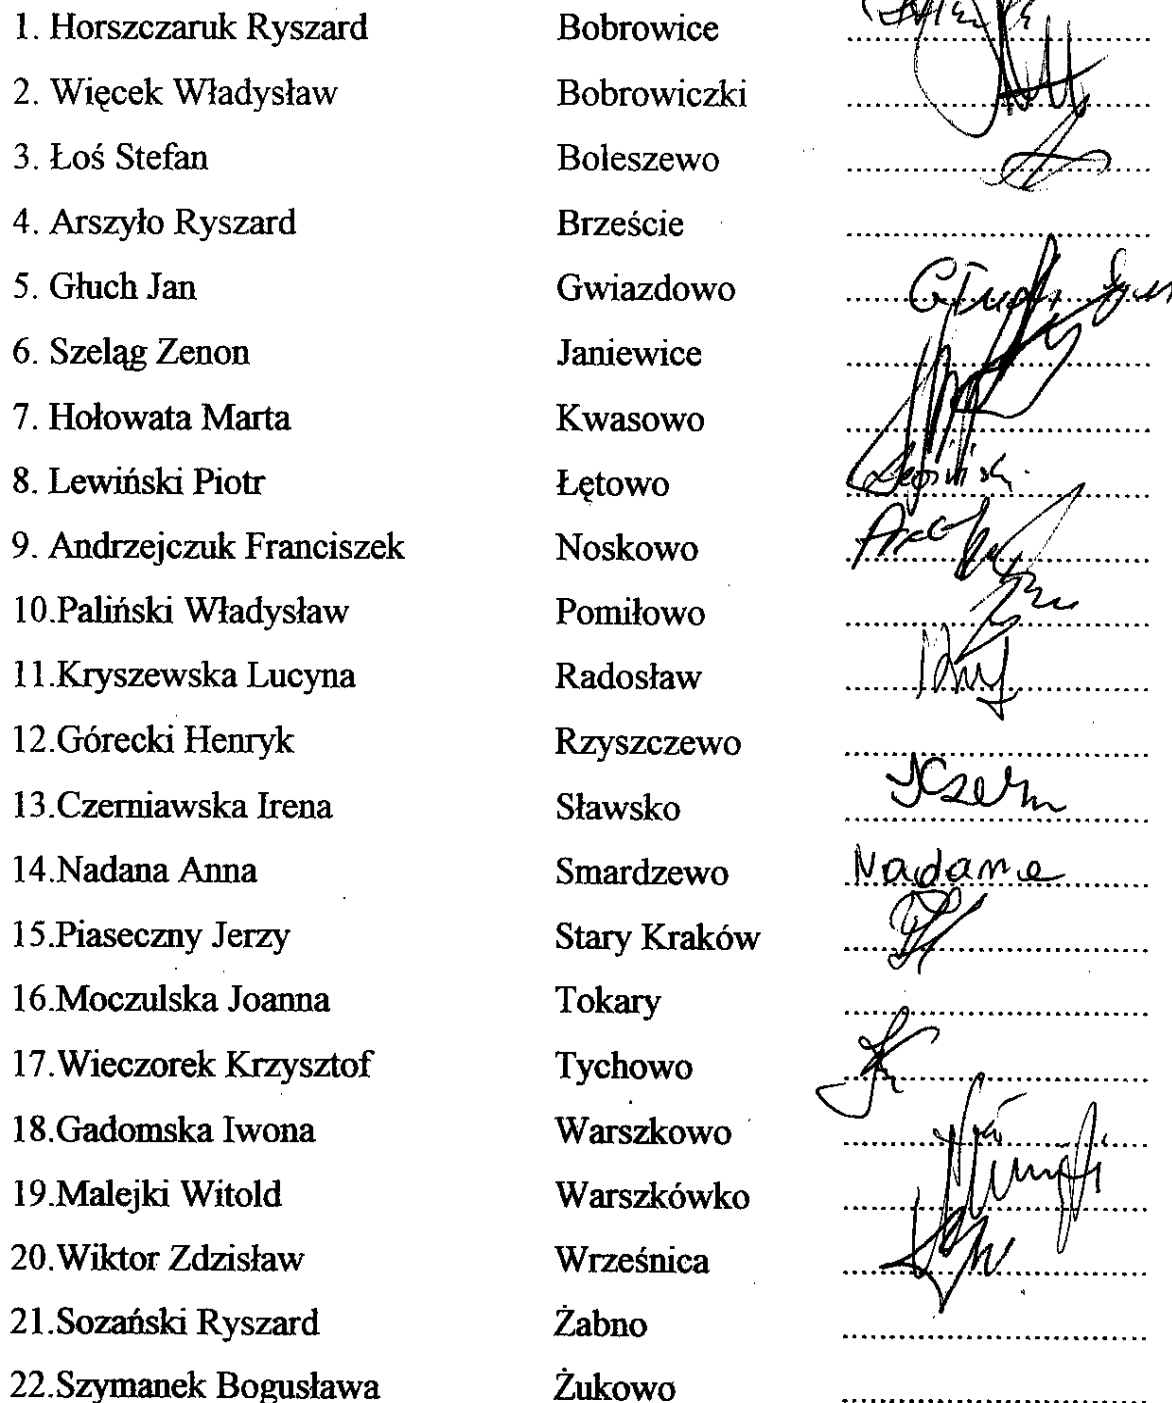 1. Horszczaruk Ryszard Bobrowice ........................................
2. Więcek Władysław Bobrowiczki ........................................
3. Łoś Stefan Boleszewo ........................................
4. Arszyło Ryszard Brzeście ........................................
5. Głuch Jan Gwiazdowo Głuch Jan
6. Szeląg Zenon Janiewice ........................................
7. Hołowata Marta Kwasowo ........................................
8. Lewiński Piotr Łętowo Lewiński
9. Andrzejczuk Franciszek Noskowo ........................................
10.Paliński Władysław Pomiłowo ........................................
11.Kryszewska Lucyna Radosław ........................................
12.Górecki Henryk Rzyszczewo ........................................
13.Czerniawska Irena Sławsko JCzern
14.Nadana Anna Smardzewo Nadana
15.Piaseczny Jerzy Stary Kraków ........................................
16.Moczulska Joanna Tokary ........................................
17.Wieczorek Krzysztof Tychowo ........................................
18.Gadomska Iwona Warszkowo ........................................
19.Malejki Witold Warszkówko ........................................
20.Wiktor Zdzisław Wrześnica ........................................
21.Sozański Ryszard Żabno ........................................
22.Szymanek Bogusława Żukowo ........................................